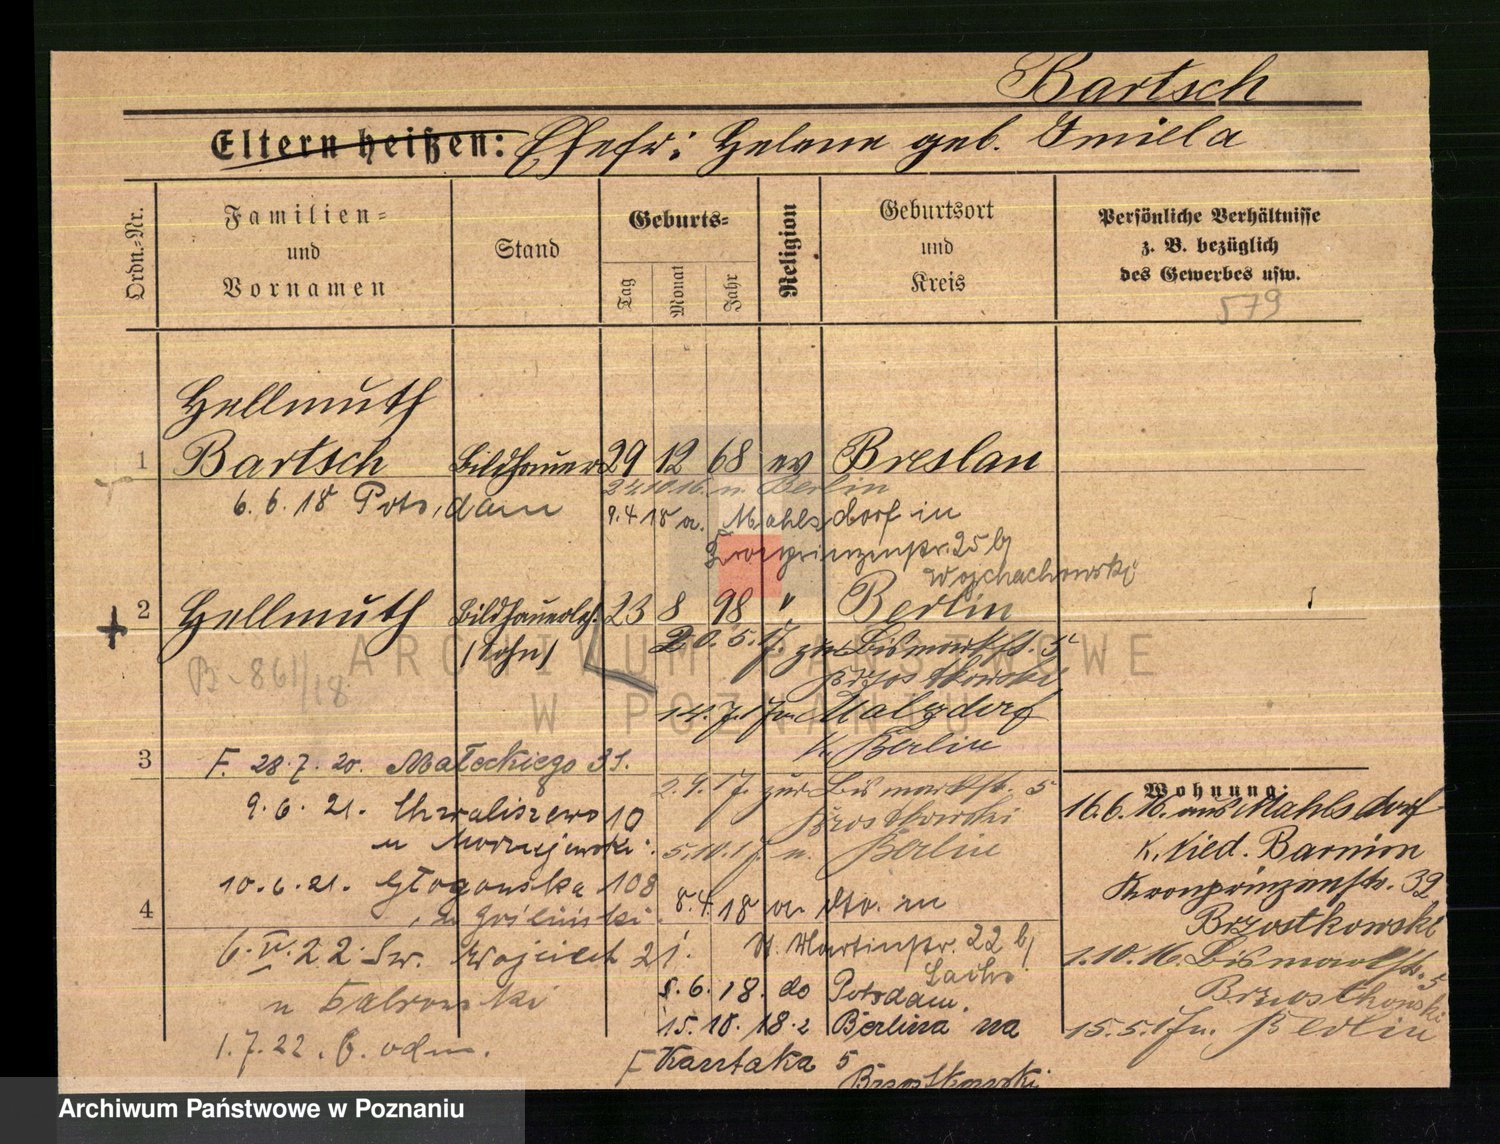 Bartsch
Eltern heißen: Ehefr: Helene geb. Smiela
Ordn.-Nr.
Familien-
und
Vornamen
Stand
Geburts-
Tag
Monat
Jahr
Religion
Geburtsort
und
Kreis
Persönliche Verhältnisse
z. B. bezüglich
des Gewerbes usw.
579
Hellmuth
1 Bartsch Bildhauer 29 12 68 ev Breslau
24.10.16. n Berlin
6.6.18 Potsdam
9.4.18 a. Mahlsdorf in
Kronprinzenstr. 25 b/
Wojchachowski
2 Hellmuth Bildhauerlg. 23 8 98 " Berlin
(Sohn)
20.5.17. zur Bismarkstr. 5
Brzostkowski
B-861/18
14.7.17 n. Malsdorf
b. Berlin
3
F. 28.7.20. Małeckiego 31.
2.9.17. zur Bismarkstr. 5
Brzostkowski
9.6.21. Chwaliszewo 10
u Morzejewski.
5.10.17. n. Berlin
10.6.21. Głogowska 108
u Gośliński
4
8.4.18 a. dto. in
St. Martinstr. 22 b/
Sachs
6.IV.22. Św. Wojciech 21.
u
5.6.18. do Potsdam.
15.10.18. z Berlina na
1.7.22. odm.
F Kantaka 5
Brzostkowski
Wohnung:
16.6.16. aus Mahlsdorf
K. Nied. Barnim
Kronprinzenstr. 39
Brzostkowski
1.10.16. Bismarkstr. 5
Brzostkowski
15.5.17 n. Berlin
ARCHIWUM PAŃSTWOWE
W POZNANIU
Archiwum Państwowe w Poznaniu